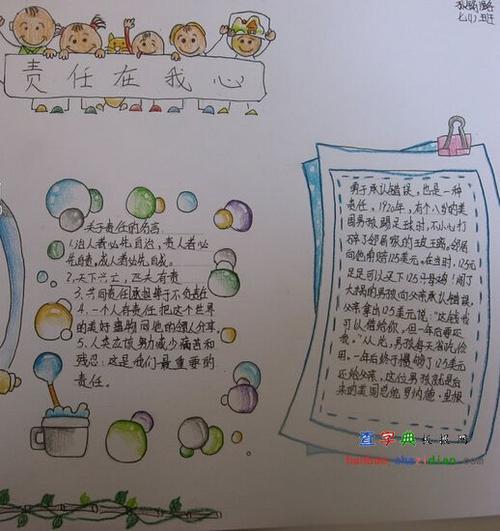 七(1)班
责任在我心
关于责任的名言
1、治人者必先自治,责人者必
先自责,成人者必先自成。
2、天下兴亡,匹夫有责
3、共同责任承担等于不负责任
4、一个人有责任把这个世界
的美好事物同他的邻人分享。
5、人类应该努力减少痛苦和
残忍:这是我们最重要的
责任。
勇于承认错误,也是一种
责任。1920年,有个八岁的美
国男孩踢足球时,不小心打
碎了邻居家的玻璃,邻居
向他索赔12.5美元。在当时,12.5元
足足可以买下125只母鸡!闯了
大祸的男孩向父亲承认错误,
父亲拿出12.5美元说:"这钱也
可以借给你,但一年后要还
我。"从此,男孩每天省吃俭
用。一年后终于攒够了12.5美元
还给父亲,这位男孩就是后
来的美国总统罗纳德·里根
查字典手抄报网